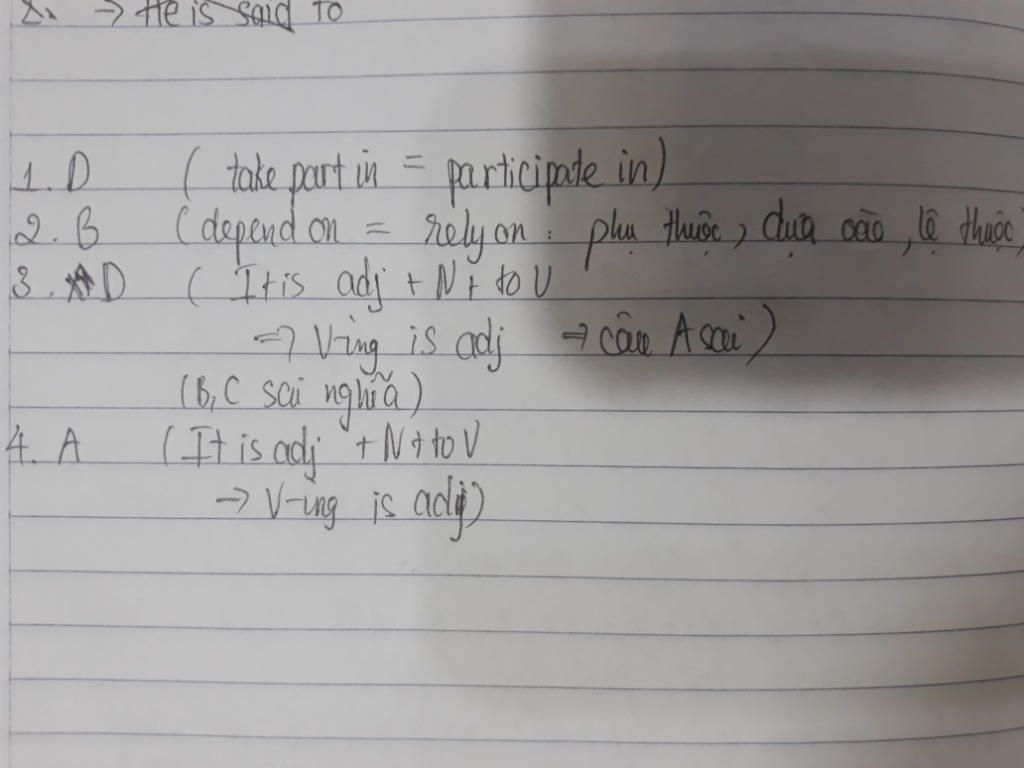 → He is said to
1. D ( take part in = participate in)
2. B (depend on = rely on : phụ thuộc, dựa vào, lệ thuộc)
3. D ( It is adj + N + to V
=> V-ing is adj → câu A sai)
(B, C sai nghĩa)
4. A (It is adj + N + to V
→ V-ing is adj)